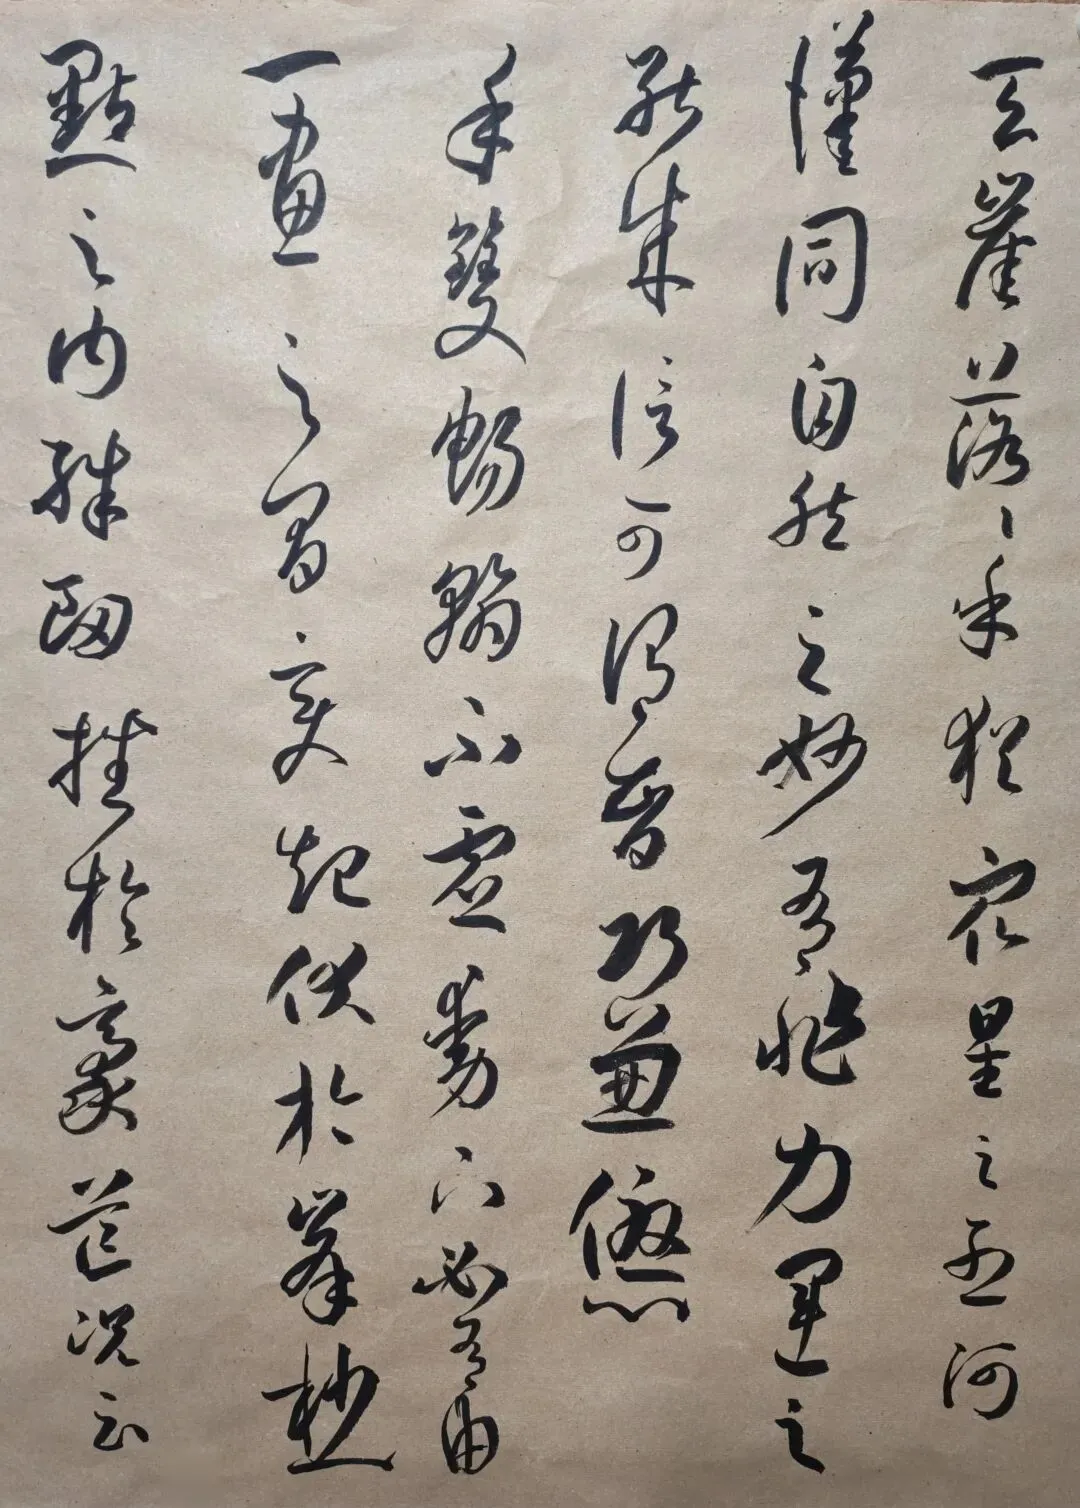 天崖落落乎猶眾星之列河
漢同自然之妙有非力運之
能成信可謂智巧兼優心
手雙暢翰不虛動下必有由
一畫之間變起伏於峯杪
點之內殊衄挫於豪芒況云